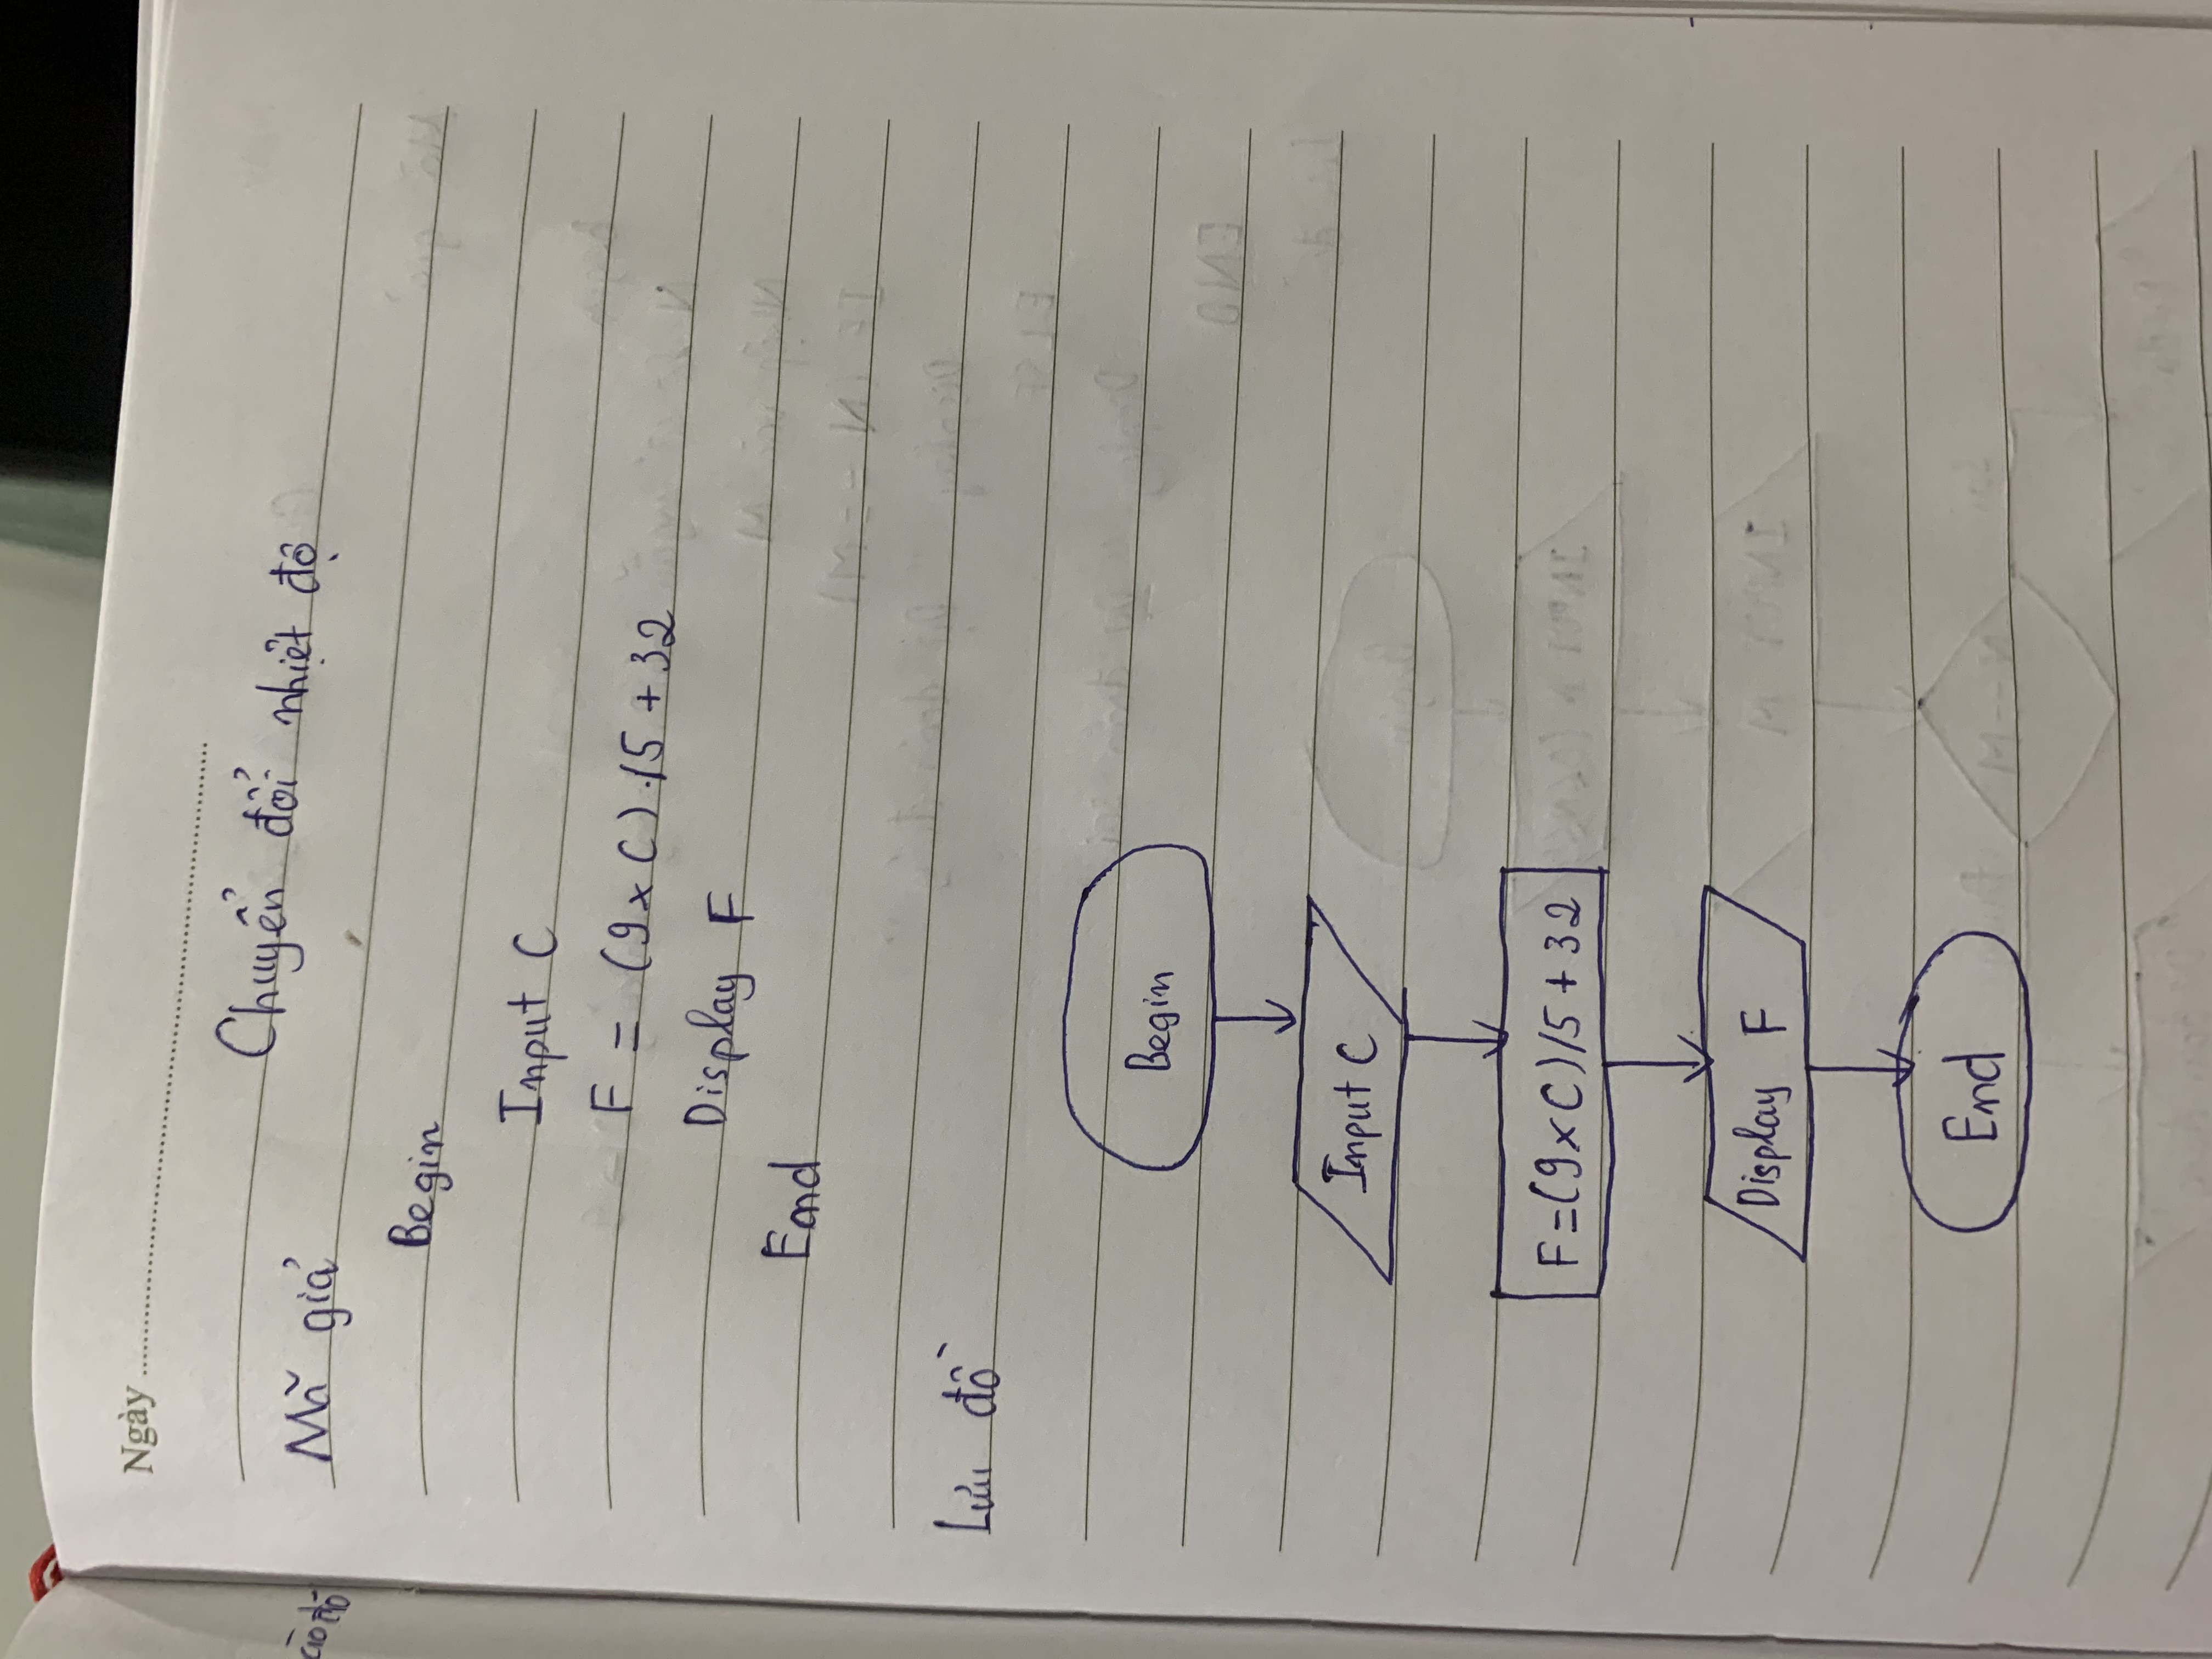 Ngày
Chuyển đổi nhiệt độ
Mã giả
Begin
Input C
F = (9 x C) ./5 + 32
Display F
End
Lưu đồ
Begin
Input C
F = (9 x C) /5 + 32
Display F
End